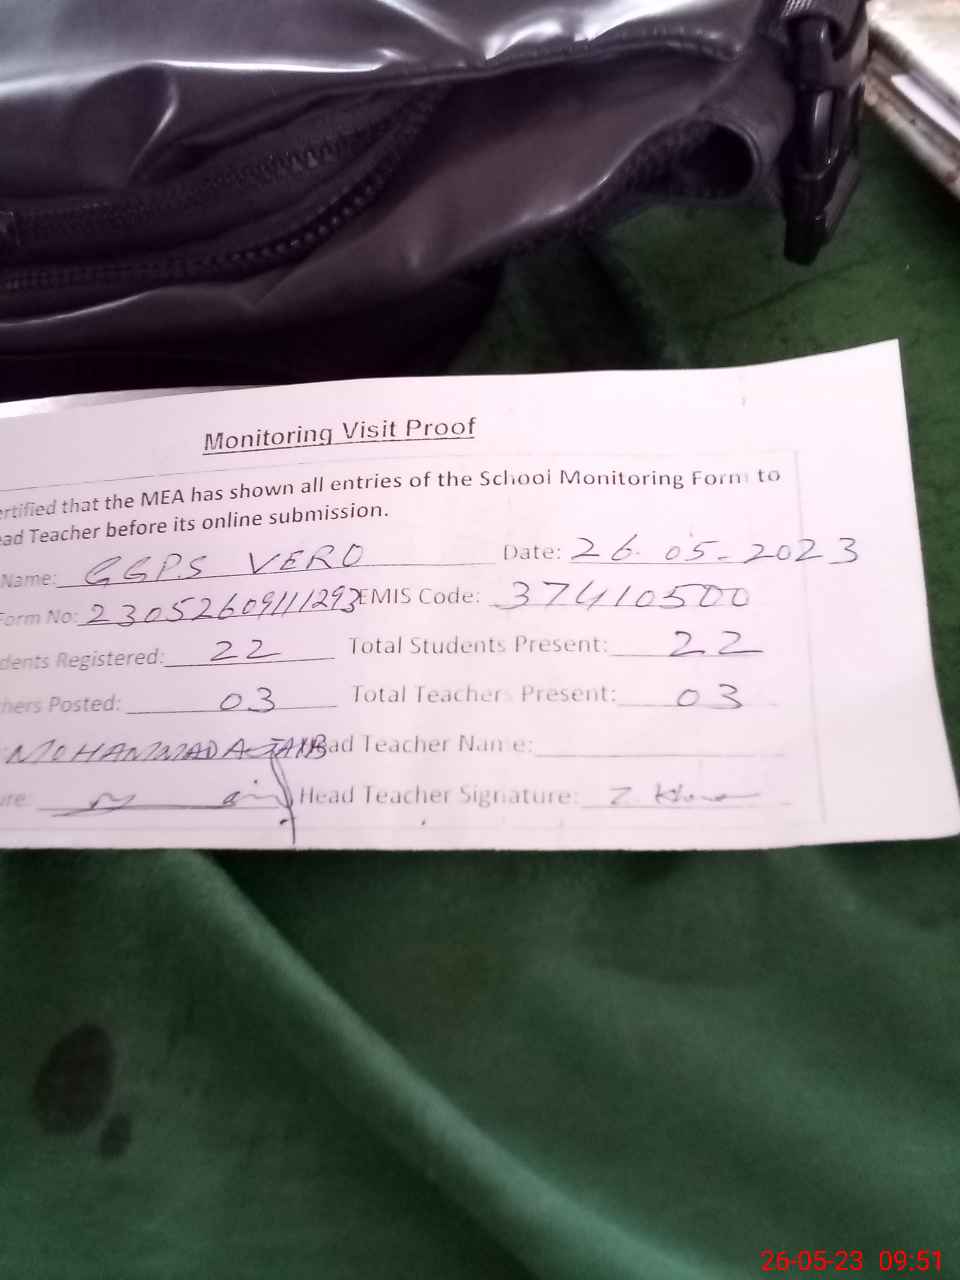 Monitoring Visit Proof
ertified that the MEA has shown all entries of the School Monitoring Form to
ad Teacher before its online submission.
Name: GGPS VERO Date: 26.05-2023
Form No: 23052609111293 EMIS Code: 37410500
dents Registered: 22 Total Students Present: 22
hers Posted: 03 Total Teachers Present: 03
MOHAMMAD ad Teacher Name:
ure: Head Teacher Signature: Z.
26-05-23 09:51